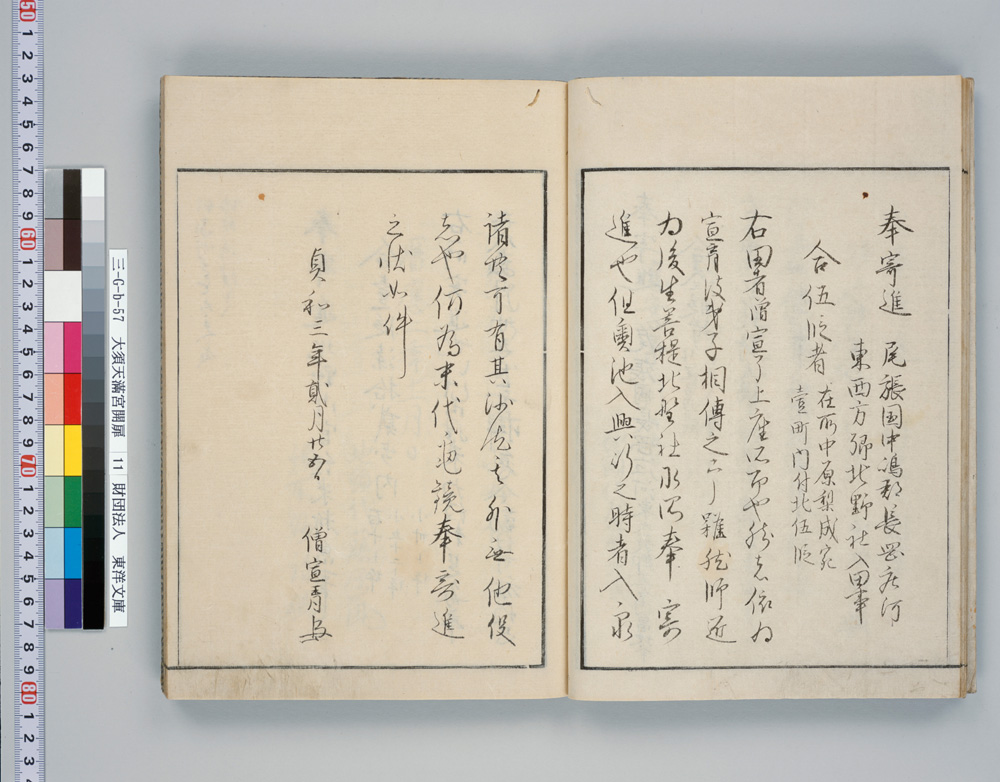 奉寄進 尾張国中嶋郡長岡庄河
東西方郷北野社入田事
合伍段者 在所中原梨成宛
壹町門付北伍段
右田者僧宣了上座沽却也然者依為
宣有彼弟子相傳之
雖然師匠
為後生菩提北野社永所奉寄
進也但奥池入興行之時者入
諸共可有其沙汰之外無他役
者也仍為末代亀鏡奉寄進
之状如件
貞和三年貳月廿五日
僧宣有
三-G-b-57 大須天満宮開扉 11 財団法人 東洋文庫